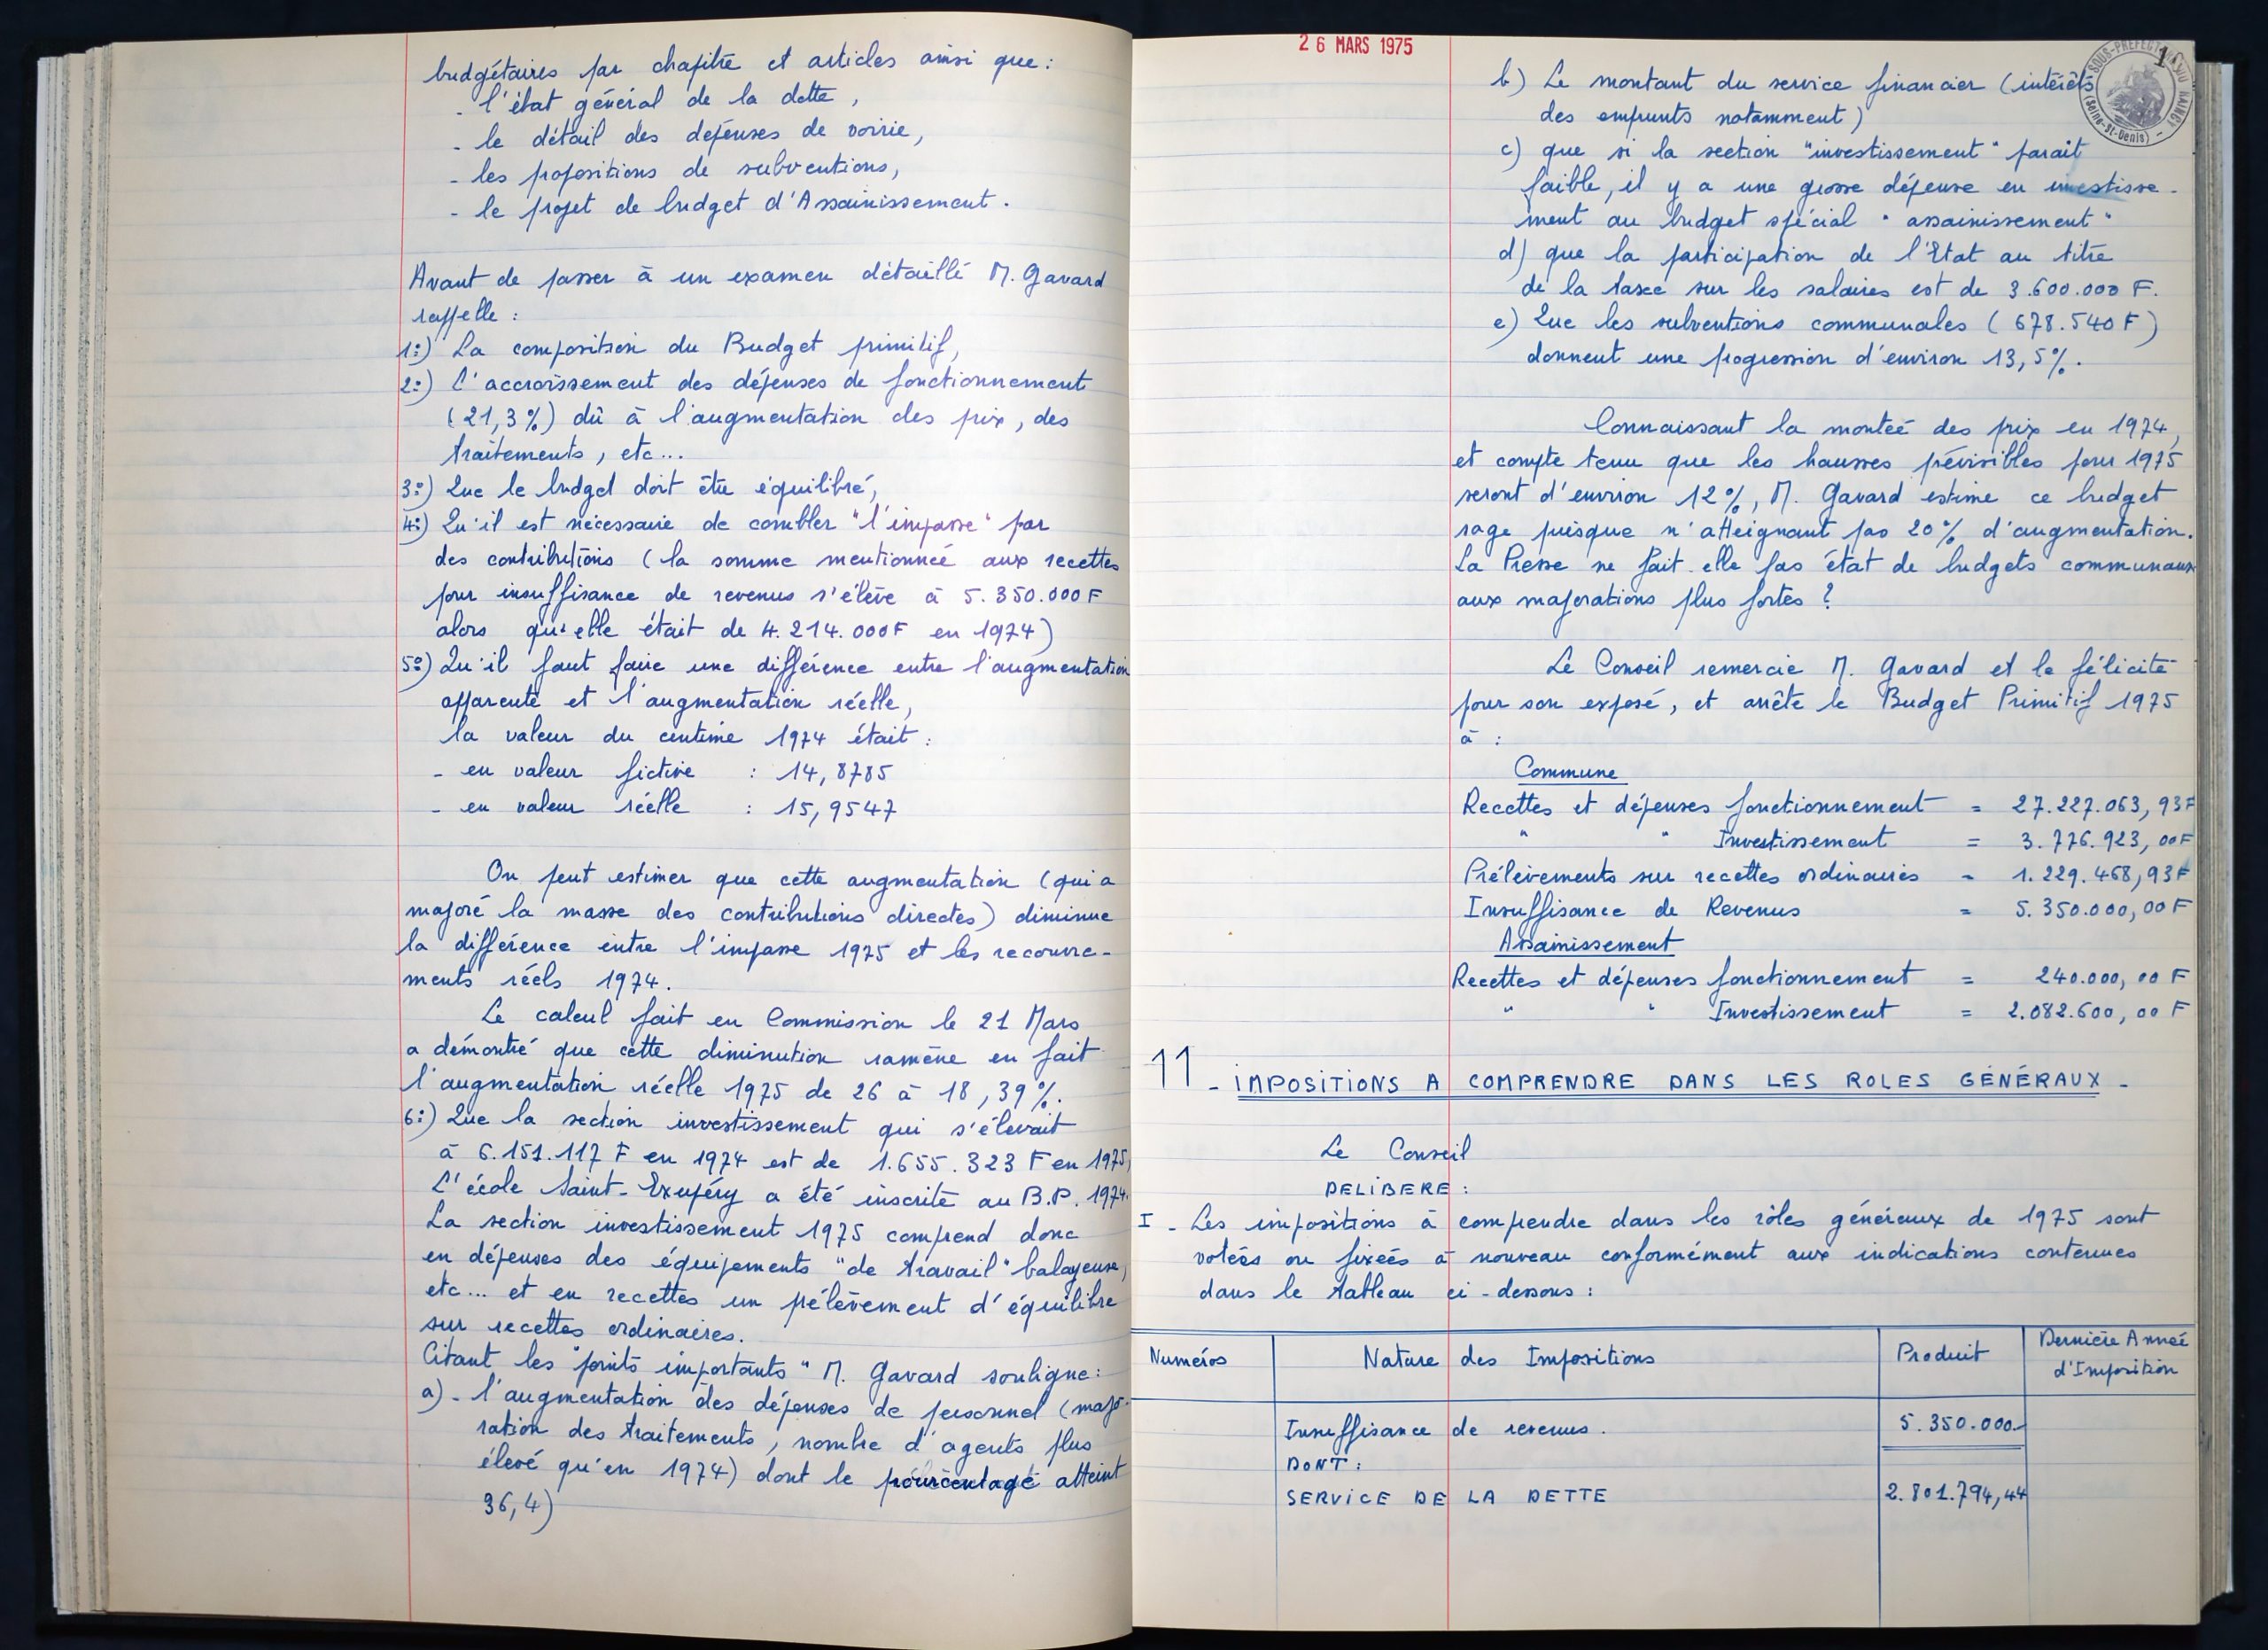 budgétaires par chapitre et articles ainsi que :
- l'état général de la dette,
- le détail des dépenses de voirie,
- les propositions de subventions,
- le projet de budget d'Assainissement.
Avant de passer à un examen détaillé M. Gavard
rappelle :
1°) La composition du Budget primitif,
2°) L'accroissement des dépenses de fonctionnement
(21,3 %) dû à l'augmentation des prix, des
traitements, etc...
3°) Que le budget doit être équilibré,
4°) Qu'il est nécessaire de combler "l'impasse" par
des contributions (la somme mentionnée aux recettes
pour insuffisance de revenus s'élève à 5.350.000 F
alors qu'elle était de 4.214.000 F en 1974)
5°) Qu'il faut faire une différence entre l'augmentation
apparente et l'augmentation réelle,
la valeur du centime 1974 était :
- en valeur fictive : 14,8785
- en valeur réelle : 15,9547
On peut estimer que cette augmentation (qui a
majoré la masse des contributions directes) diminue
la différence entre l'impasse 1975 et les recouvre-
ments réels 1974.
Le calcul fait en Commission le 21 Mars
a démontré que cette diminution ramène en fait
l'augmentation réelle 1975 de 26 à 18,39 %.
6°) Que la section investissement qui s'élevait
à 6.151.117 F en 1974 est de 1.655.323 F en 1975,
L'école Saint-Exupéry a été inscrite au B.P. 1974.
La section investissement 1975 comprend donc
en dépenses des équipements "de travail" balayeuse,
etc... et en recettes un prélèvement d'équilibre
sur recettes ordinaires.
Citant les "points importants" M. Gavard souligne :
a) - l'augmentation des dépenses de personnel (majo-
ration des traitements, nombre d'agents plus
élevé qu'en 1974) dont le pourcentage atteint
36,4)
26 MARS 1975
SOUS-PREFECTURE DU RAINCY
(Seine-St-Denis)
1
b) Le montant du service financier (intérêts
des emprunts notamment)
c) que si la section "investissement" parait
faible, il y a une grosse dépense en investisse-
ment au budget spécial "assainissement"
d) que la participation de l'Etat au titre
de la taxe sur les salaires est de 3.600.000 F.
e) Que les subventions communales (678.540 F)
donnent une progression d'environ 13,5%.
Connaissant la montée des prix en 1974,
et compte tenu que les hausses prévisibles pour 1975
seront d'environ 12%, M. Gavard estime ce budget
sage puisque n'atteignant pas 20% d'augmentation.
La Presse ne fait-elle pas état de budgets communaux
aux majorations plus fortes ?
Le Conseil remercie M. Gavard et le félicite
pour son exposé, et arrête le Budget Primitif 1975
à :
Commune
Recettes et dépenses fonctionnement = 27.227.063,93 F
" " Investissement = 3.776.923,00 F
Prélèvements sur recettes ordinaires = 1.229.468,93 F
Insuffisance de Revenus = 5.350.000,00 F
Assainissement
Recettes et dépenses fonctionnement = 240.000,00 F
" " Investissement = 2.082.600,00 F
11 - IMPOSITIONS A COMPRENDRE DANS LES ROLES GÉNÉRAUX -
Le Conseil
DELIBERE :
I - Les impositions à comprendre dans les rôles généraux de 1975 sont
votées ou fixées à nouveau conformément aux indications contenues
dans le tableau ci-dessous :
Numéros Nature des Impositions Produit Dernière Année
d'Imposition
Insuffisance de revenus. 5.350.000.-
DONT :
SERVICE DE LA DETTE 2.801.794,44